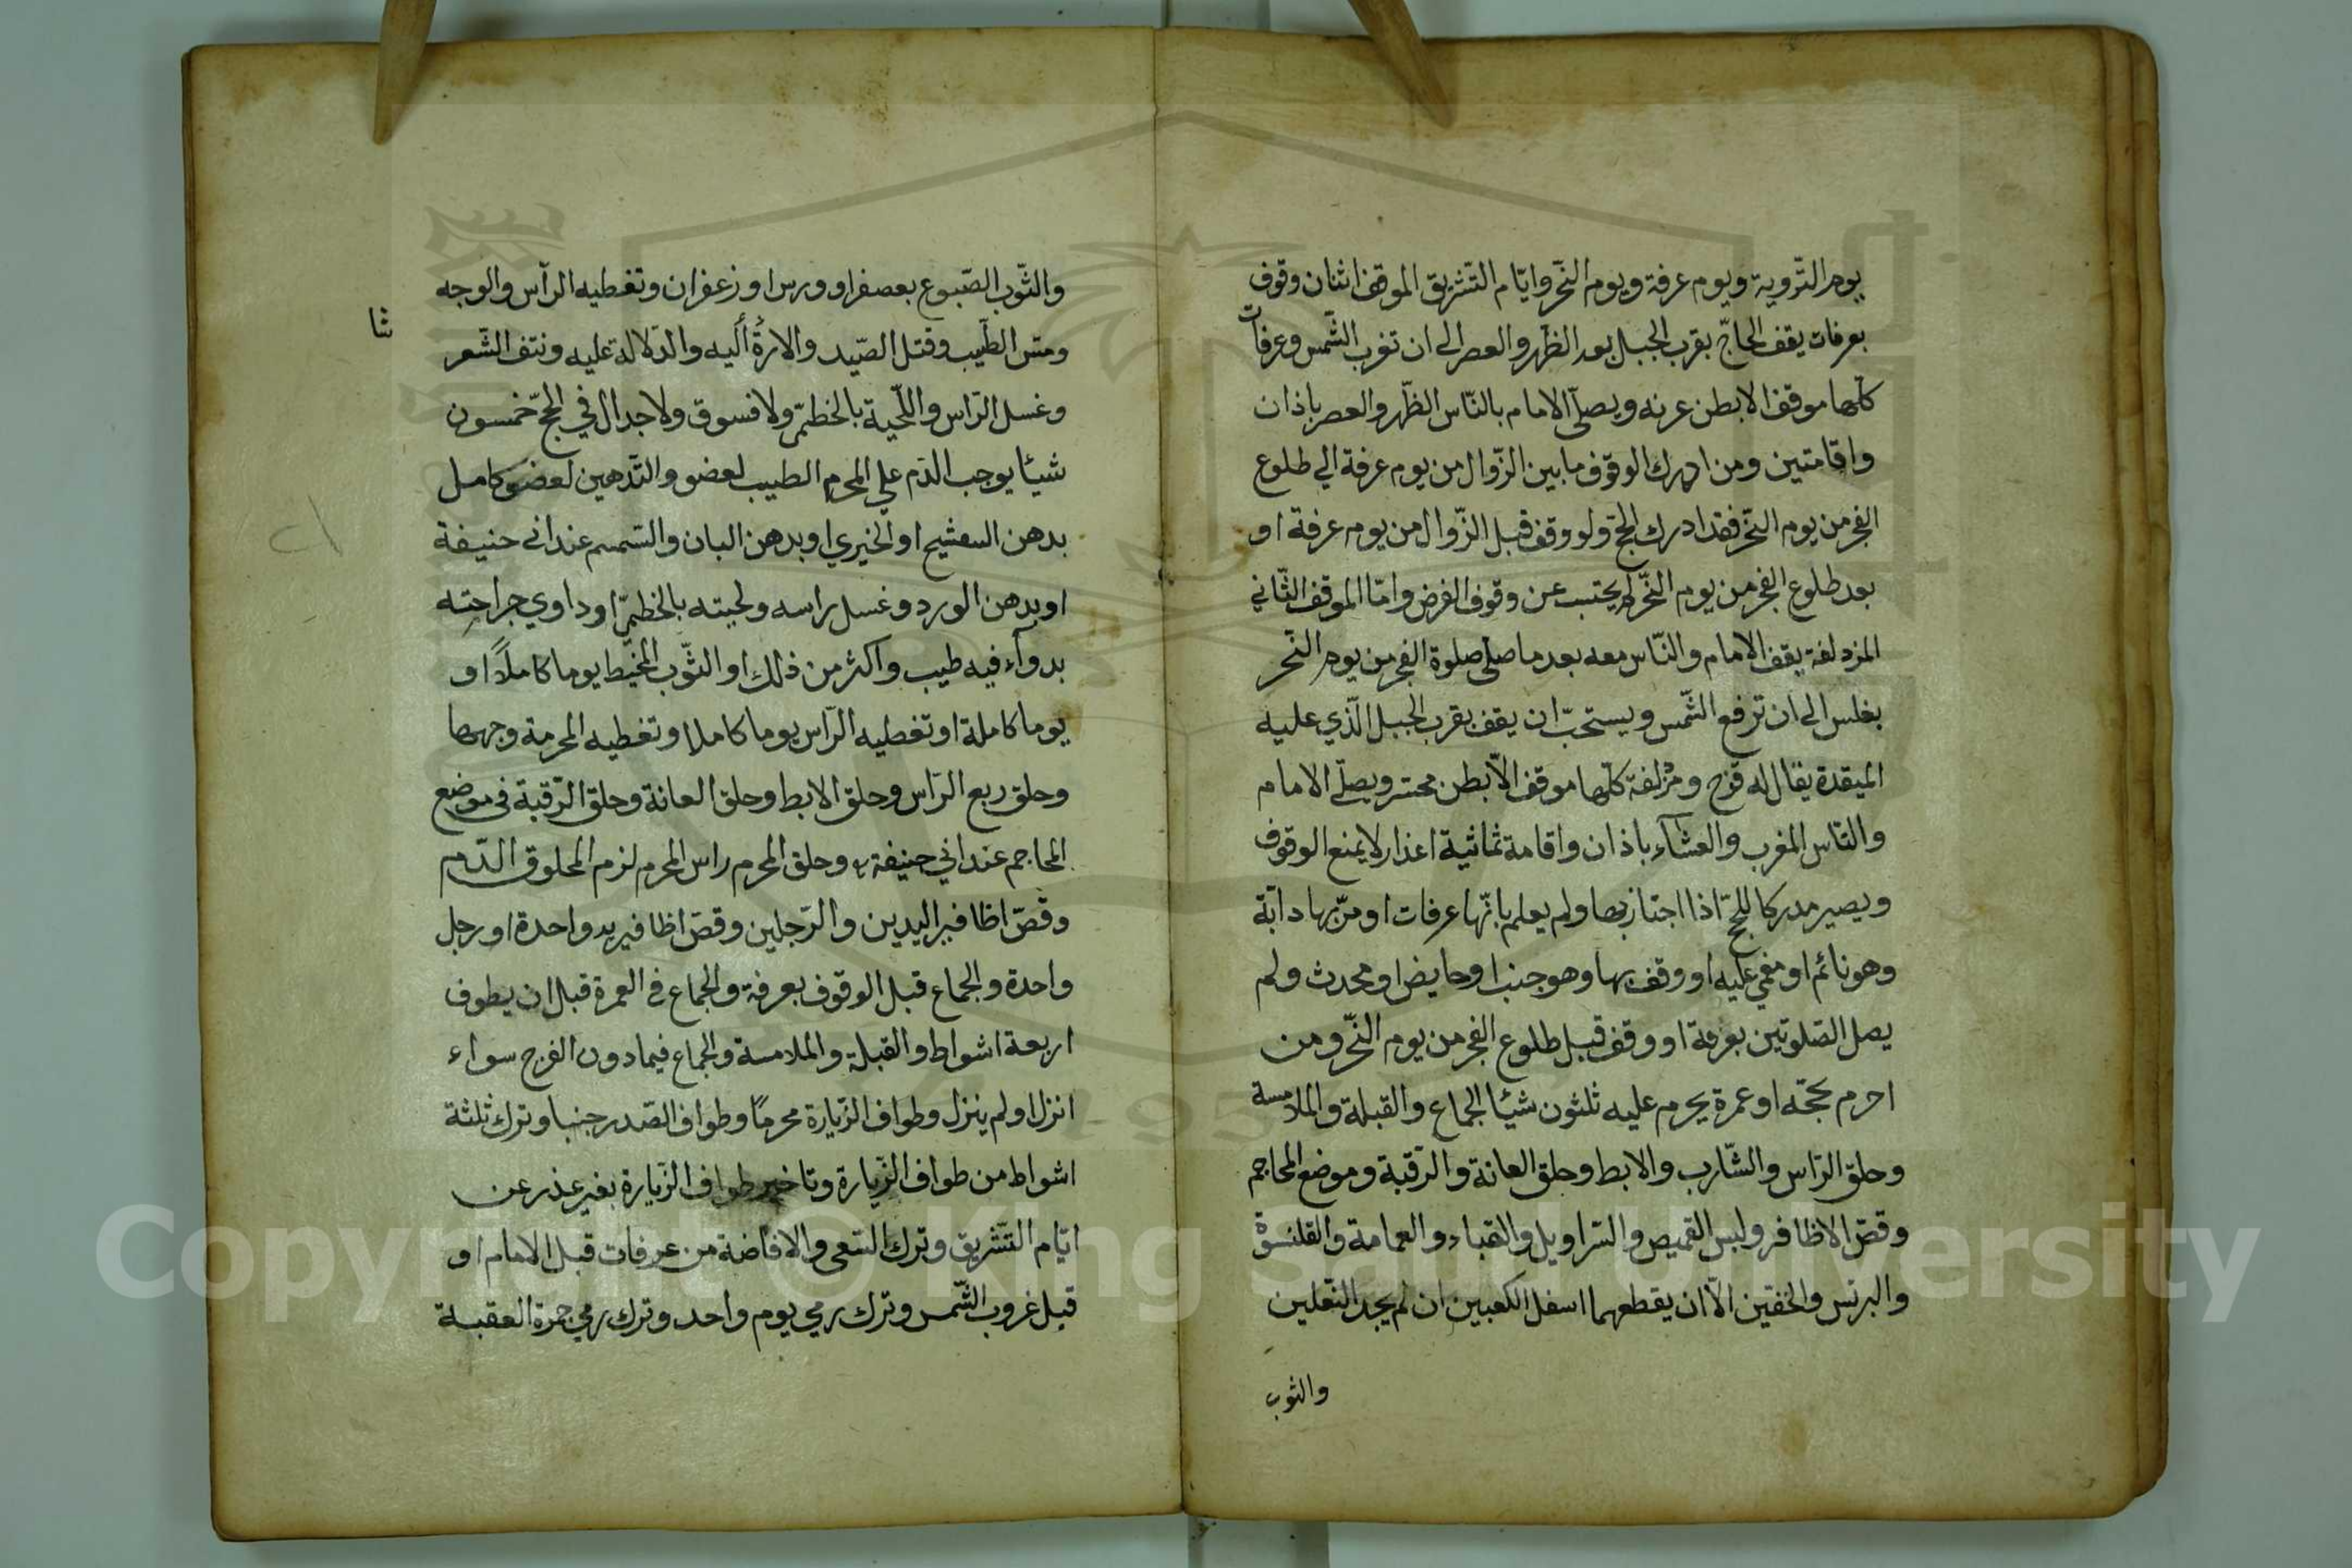 يوم التّروية ويوم عرفة ويوم النّحر وايّام التّشريق الموقف اثنان وقوف
بعرفات يقف الحاجّ بقرب الجبل بعد الظّهر والعصر الى ان تغرب الشّمس وعرفات
كلّها موقف الا بطن عرنه ويصلّى الامام بالنّاس الظّهر والعصر باذان
واقامتين ومن ادرك الوقوف ما بين الزّوال من يوم عرفة الي طلوع
الفجر من يوم النّحر فقد ادرك الحجّ ولو وقف قبل الزّوال من يوم عرفة او
بعد طلوع الفجر من يوم النّحر لم يحتسب عن وقوف الفرض وامّا الموقف الثّاني
المزدلفة يقف الامام والنّاس معه بعد ما صلى صلوة الفجر من يوم النّحر
بغلس الى ان ترفع الشّمس ويستحبّ ان يقف بقرب الجبل الّذي عليه
الميقدة يقال له قزح ومزلفة كلّها موقف الّا بطن محسر ويصلّي الامام
والنّاس المغرب والعشآء باذان واقامة ثمانية اعذار لا يمنع الوقوف
ويصير مدركا للحجّ اذا اجتاز بها ولم يعلم بانّها عرفات او مرّ بها دابّة
وهو نائم او مغمي عليه او وقف بها وهو جنب او حايض او محدث ولم
يصل الصّلوتين بعرفة او وقف قبل طلوع الفجر من يوم النّحر ومن
احرم بحجّه او عمرة يحرم عليه ثلثون شيئا الجماع والقبلة والملامسة
وحلق الرّاس والشّارب والابط وحلق العانة والرّقبة وموضع المحاجم
وقصّ الاظافر ولبس القميص والسّراويل والقباء والعمامة والقلنسوة
والبرنس والخفّين الّا ان يقطعهما اسفل الكعبين ان لم يجد النّعلين
والثوب
والثّوب الصّبوغ بعصفر او ورس او زعفران وتغطيه الرّأس والوجه
ومسّ الطّيب وقتل الصّيد والارة اليه والدّلالة عليه ونتف الشّعر
شا
وغسل الرّاس واللّحية بالخطمّي ولا فسوق ولا جدال في الحجّ خمسون
شيئا يوجب الدّم علي المحرم الطيب لعضو والتّدهين لعضو كامل
بدهن البنفشيح او الخيري او بدهن البان والسّمسم عند ابى حنيفة
او بدهن الورد وغسل راسه ولحيته بالخطمّي او داوي جراحته
بدوآء فيه طيب واكثر من ذلك او الثّوب المخيّط يوما كاملًا او
يوما كاملة او تغطيه الرّاس يوما كاملا وتغطيه المحرمة وجهها
وحلق ربع الرّاس وحلق الابط وحلق العانة وحلق الرّقبة فى موضع
المحاجم عند ابي حنيفة وحلق المحرم راس المحرم لزم المحلوق الدّم
وقصّ اظافير اليدين والرّجلين وقصّ اظافير يد واحدة او رجل
واحدة والجماع قبل الوقوف بعرفة والجماع في العمرة قبل ان يطوف
اربعة اشواط والقبلة والملامسة والجماع فيما دون الفرج سواء
انزل او لم ينزل وطواف الزّيارة محرمًا وطواف الصّدر جنبا وترك ثلثة
اشواط من طواف الزّيارة وتاخير طواف الزّيارة بغير عذر عن
ايّام التّشريق وترك السّعى والافاضة من عرفات قبل الامام او
قبل غروب الشّمس وترك رمي يوم واحد وترك رمي جمرة العقبة
Copyright © King Saud University